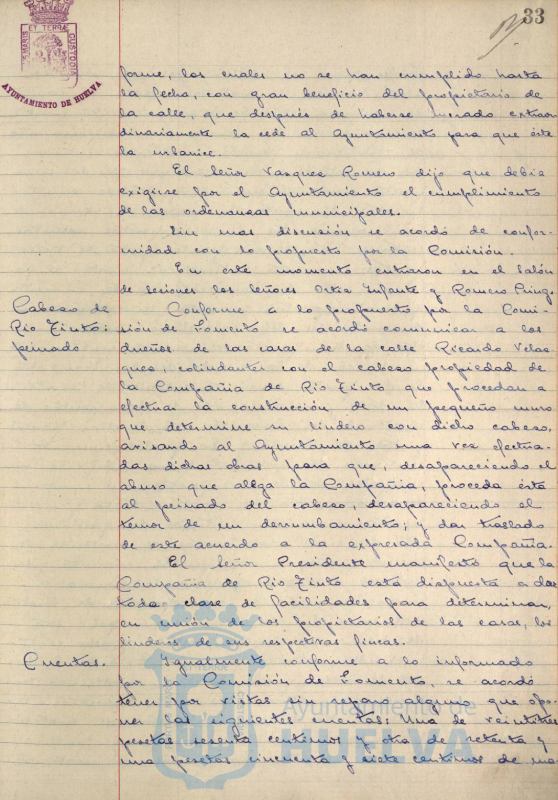 33
AYUNTAMIENTO DE HUELVA
forme, los cuales no se han cumplido hasta
la fecha, con gran beneficio del propietario de
la calle, que después de haberse lucrado extraor
dinariamente la cede al Ayuntamiento para que éste
la urbanice.
El Señor Vazquez Romero dijo que debia
exigirse por el Ayuntamiento el cumplimiento
de las ordenanzas municipales.
Sin mas discusión se acordó de confor-
midad con lo propuesto por la Comisión.
En este momento entraron en el Salón
de sesiones los Señores Ortiz Infante y Romero
Cabezo de
Rio Tinto:
peinado
Conforme a lo propuesto por la Comi-
sión de Fomento se acordó comunicar a los
dueños de las casas de la calle Ricardo Velaz
quez, colindantes con el cabezo propiedad de
la Compañia de Rio Tinto que procedan a
efectuar la construcción de un pequeño muro
que determine su lindero con dicho cabezo,
avisando al Ayuntamiento una vez efectua-
das dichas obras para que, desapareciendo el
abuso que alega la Compañia, proceda ésta
al peinado del cabezo, desapareciendo el
temor de un derrumbamiento; y dar traslado
de este acuerdo a la expresada Compañia.
El Señor Presidente manifestó que la
Compañia de Rio Tinto está dispuesta a dar
toda clase de facilidades para determinar,
en unión de los propietarios de las casas, los
linderos de sus respectivas fincas.
Cuentas.
Igualmente conforme a lo informado
por la Comisión de Fomento, se acordó
tener por vistas sin reparo alguno que opo-
ner las siguientes cuentas: Una de veintitres
pesetas sesenta centimos y otra de setenta y
una pesetas cincuenta y siete centimos de ma
Ayuntamiento de
HUELVA